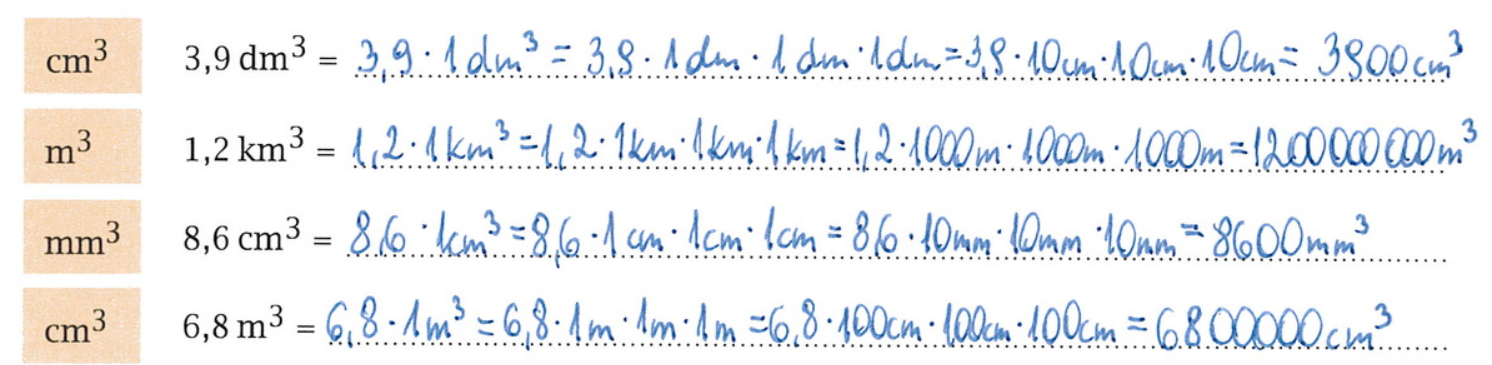 cm³ 3,9 dm³ = 3,9 · 1 dm³ = 3,9 · 1 dm · 1 dm · 1dm = 3,9 · 10cm · 10cm · 10cm = 3900 cm³
m³ 1,2 km³ = 1,2 · 1 km³ = 1,2 · 1km · 1km · 1 km = 1,2 · 1000m · 1000m · 1000m = 1200000000m³
mm³ 8,6 cm³ = 8,6 · 1cm³ = 8,6 · 1 cm · 1cm · 1cm = 8,6 · 10mm · 10mm · 10mm = 8600mm³
cm³ 6,8 m³ = 6,8 · 1m³ = 6,8 · 1m · 1m · 1m = 6,8 · 100cm · 100cm · 100cm = 6800000cm³